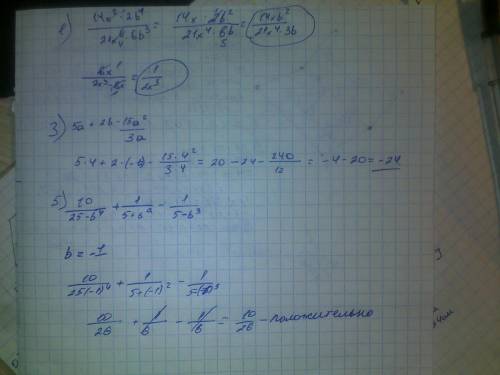 1) 14x³·2b⁴ / 21x⁴·6b³ = 14x·2b² / 21x⁴·6b = 14xb² / 21x⁴·3b
6x¹ / 2x³ = 1 / 2x³
3) 5a + 2b - 15a² / 3a
5·4 + 2·(-6) - 15·4² / 3·4 = 20 - 24 - 240 / 12 = -4 - 20 = -24
5) 10 / 25-b⁴ + 1 / 5+b² - 1 / 5-b³
b = -1
10 / 25(-1)⁴ + 1 / 5+(-1)² - 1 / 5-(-1)³
10 / 26 + 1 / 6 - 1 / 6 = 10 / 26 - положительно